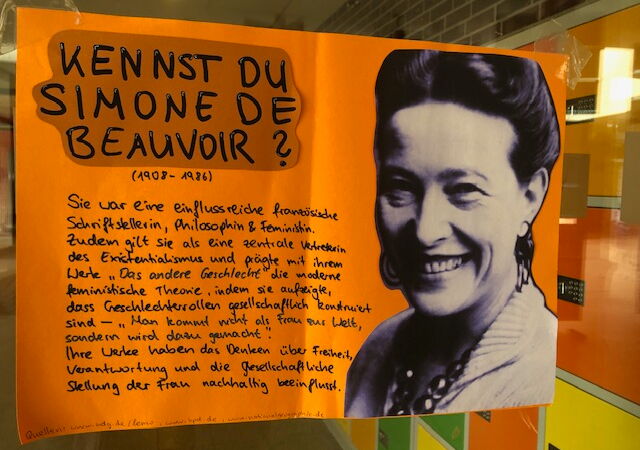 KENNST DU
SIMONE DE
BEAUVOIR ?
(1908-1986)
Sie war eine einflussreiche französische
Schriftstellerin, Philosophin & Feministin.
Zudem gilt sie als eine zentrale Vertreterin
des Existentialismus und prägte mit ihrem
Werke „Das andere Geschlecht" die moderne
feministische Theorie, indem sie aufzeigte,
dass Geschlechterrollen gesellschaftlich konstruiert
sind – „Man kommt nicht als Frau zur Welt,
sondern wird dazu gemacht".
Ihre Werke haben das Denken über Freiheit,
Verantwortung und die gesellschaftliche
Stellung der Frau nachhaltig beeinflusst.
Quellen: www. .de/lemo, www.hpd.de, www.nationalgeographic.de